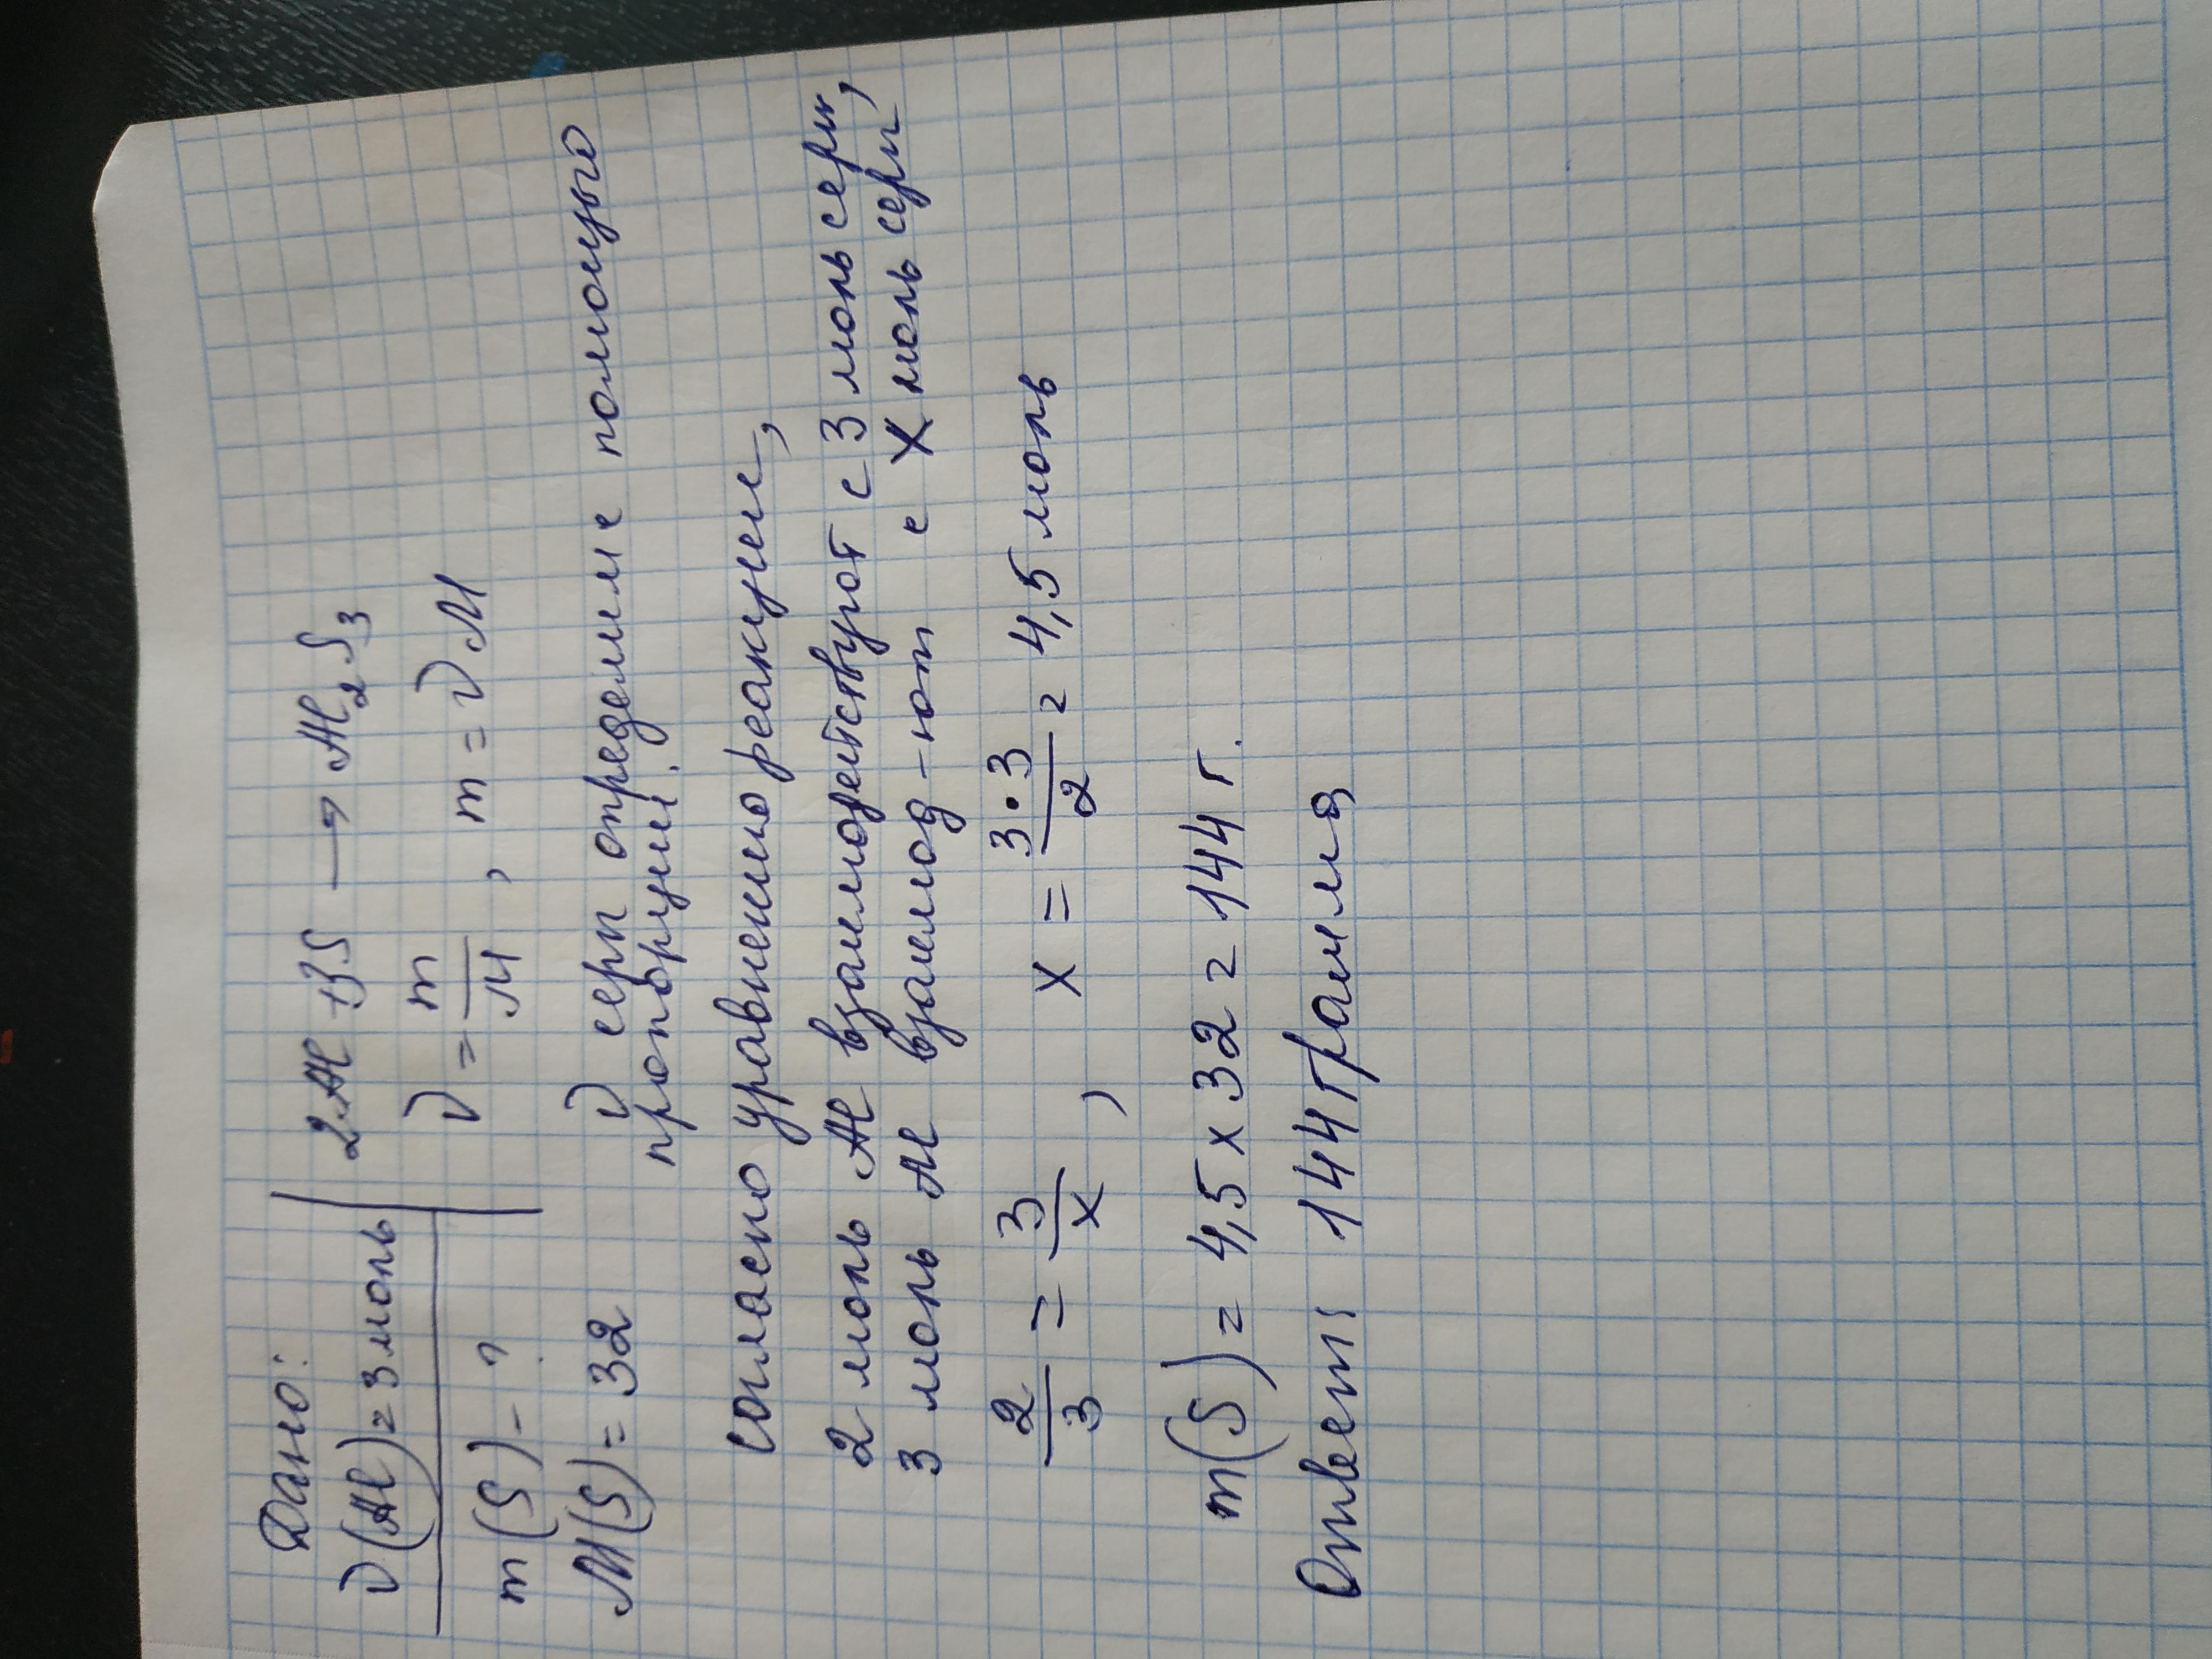 Дано:
ν(Al)=3 моль
m(S) - ?
M(S)=32
2Al+3S → Al₂S₃
ν = m/M, m = νM
ν серы определим с помощью
пропорции:
Согласно уравнению реакции,
2 моль Al взаимодействуют с 3 моль серы,
3 моль Al взаимод-ют с X моль серы,
2/3 = 3/x, x = 3·3/2 = 4,5 моль
m(S) = 4,5 x 32 = 144 г.
Ответ: 144 грамма